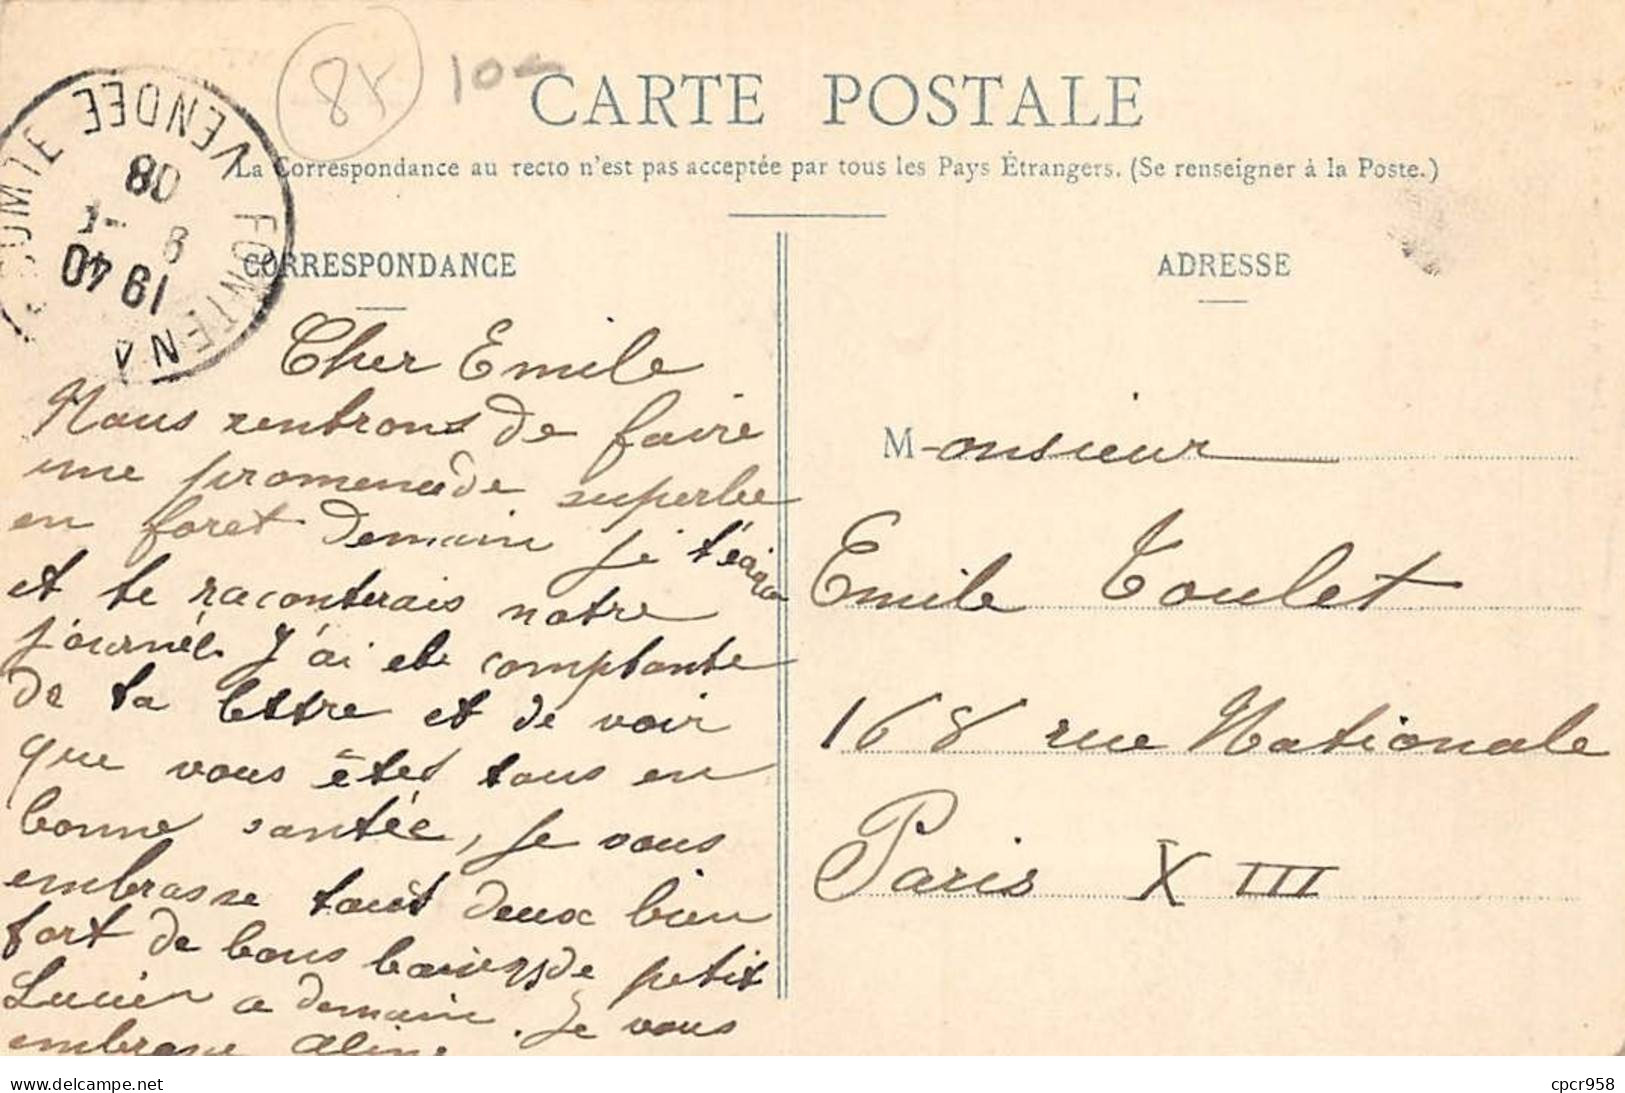 85 10-
CARTE POSTALE
La Correspondance au recto n'est pas acceptée par tous les Pays Étrangers. (Se renseigner à la Poste.)
FONTENAY COMTE VENDÉE
19 40
8 -1
08
CORRESPONDANCE
Cher Emile
Nous rentrons de faire
une promenade superbe
en foret Demain je t'écirra
et te raconterais notre
journée. J'ai ete comptante
de ta lettre et de voir
que vous êtes tous en
bonne santée, je vous
embrasse tout deux bien
fort de bons baisers de petit
Lucien a demain. Je vous
embrasse Aline
ADRESSE
M-onsieur
Emile Toulet
168 rue Nationale
Paris XIII
www.delcampe.net
cpcr958